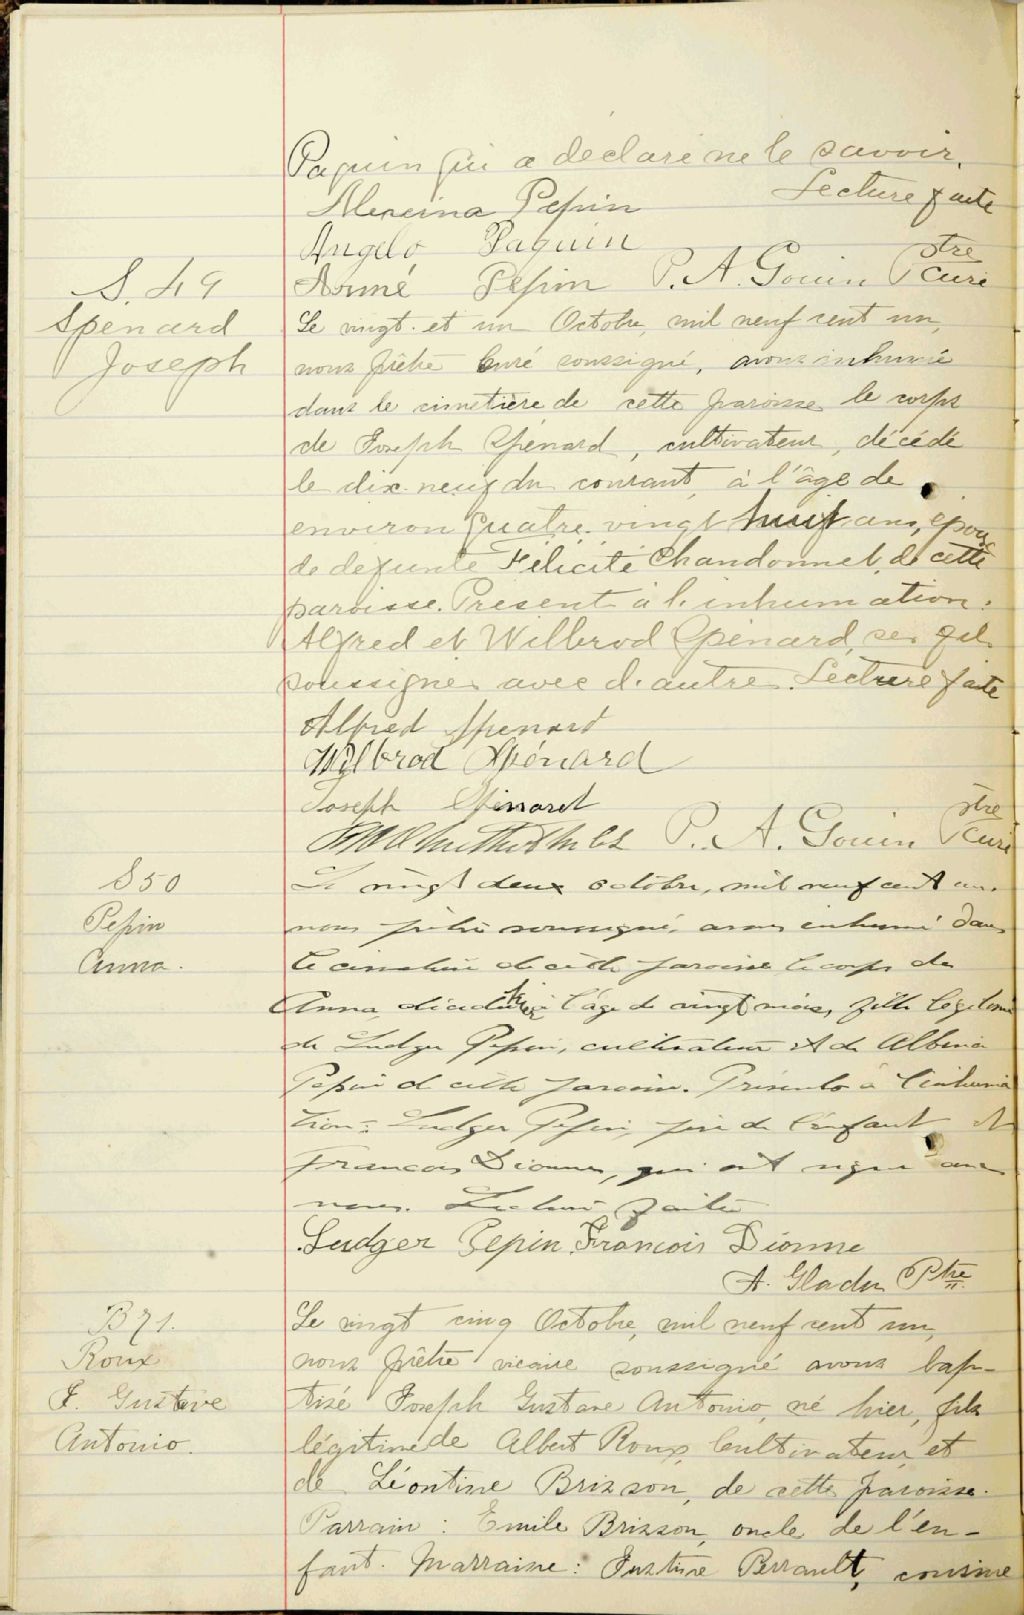 Paquin qui a déclaré ne le savoir.
Lecture faite
Alexina Pepin
Angelo Paquin
Aimé Pepin P. A. Gouin Ptre Curé
S. 49
Spenard
Joseph
Le vingt et un Octobre, mil neuf cent un,
nous prêtre Curé soussigné, avons inhumé
dans le cimetière de cette paroisse le corps
de Joseph Spénard, cultivateur, décédé
le dix-neuf du courant, à l'âge de
environ quatre-vingt huit ans, époux
de defunte Félicité Chandonnet, de cette
paroisse. Présents à l'inhumation:
Alfred et Wilbrod Spénard, ses fils
soussignés avec d'autres. Lecture faite
Alfred Spenard
Wilbrod Spénard
Joseph Spénard
P. A. Gouin Ptre Curé
S 50
Pepin
Anna.
Le vingt deux octobre, mil neuf cent un.
nous prêtre soussigné, avons inhumé dans
le cimetière de cette paroisse le corps de
Anna, décédée hier à l'âge de vingt mois, fille légitime
de Ludger Pepin, cultivateur et de Albina
Pepin de cette paroisse. Présents à l'inhuma
tion: Ludger Pepin, père de l'enfant et
François Dionne, qui ont signé avec
nous. Lecture faite
Ludger Pepin François Dionne
A. Gladu Ptre
B 71.
Roux
J. Gustave
Antonio.
Le vingt cinq Octobre, mil neuf cent un,
nous prêtre vicaire soussigné avons bap-
tisé Joseph Gustave Antonio, né hier, fils
légitime de Albert Roux, Cultivateur, et
de Léontine Brisson, de cette paroisse.
Parrain: Emile Brisson, oncle de l'en-
fant. Marraine: Justine Perrault, cousine